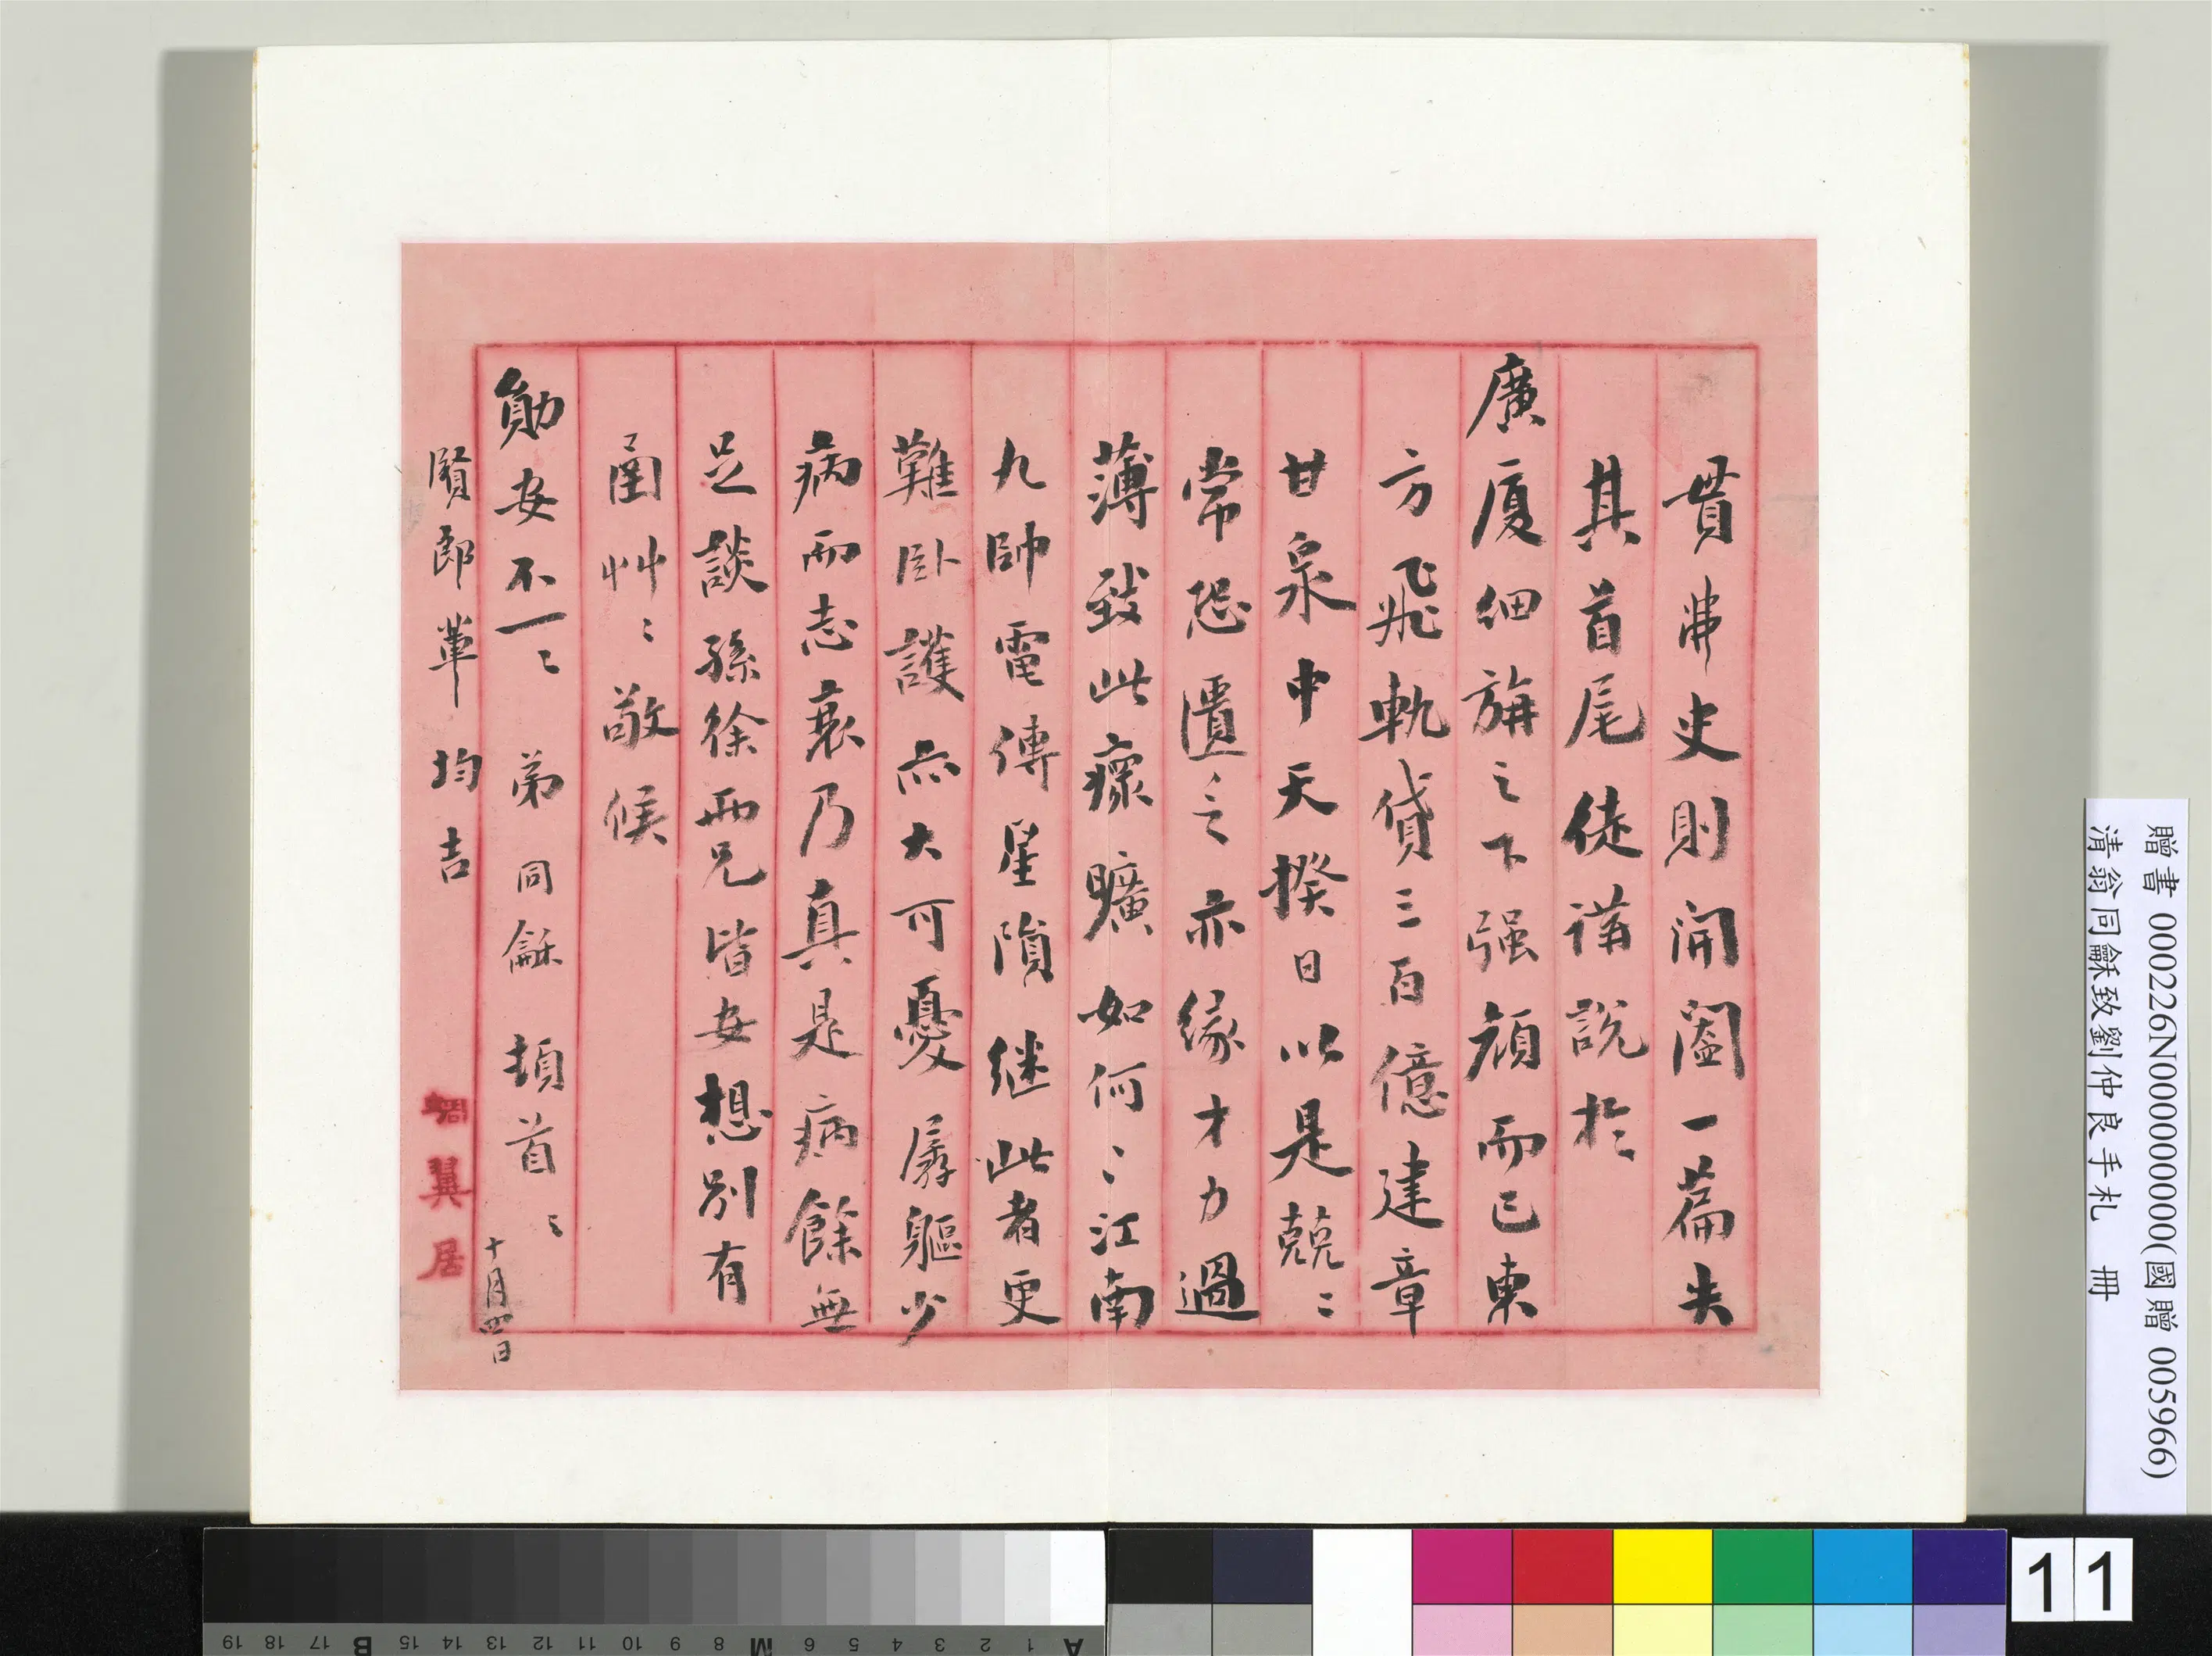 貫弗史則開闔一篇失
其首尾徒講說於
廣廈細旃之下強顏而已東
方飛軌貸三百億建章
甘泉中天揆日以是兢〻
常恐匱乏亦緣才力過
薄致此瘝曠如何〻江南
九帥電傳星隕继此者更
難卧護亦大可憂孱軀少
病而志衰乃真是病餘無
足談孫徐兩兄皆安想別有
圅艸〻敬候
勛安不一〻 弟同龢頓首〻
十月四日
賢郎輩均吉
蜩翼居
贈書 000226N000000000(國贈 005966)
清翁同龢致劉仲良手札 冊
11
A 1 2 3 4 5 6 M 8 9 10 11 12 13 14 15 B 17 18 19